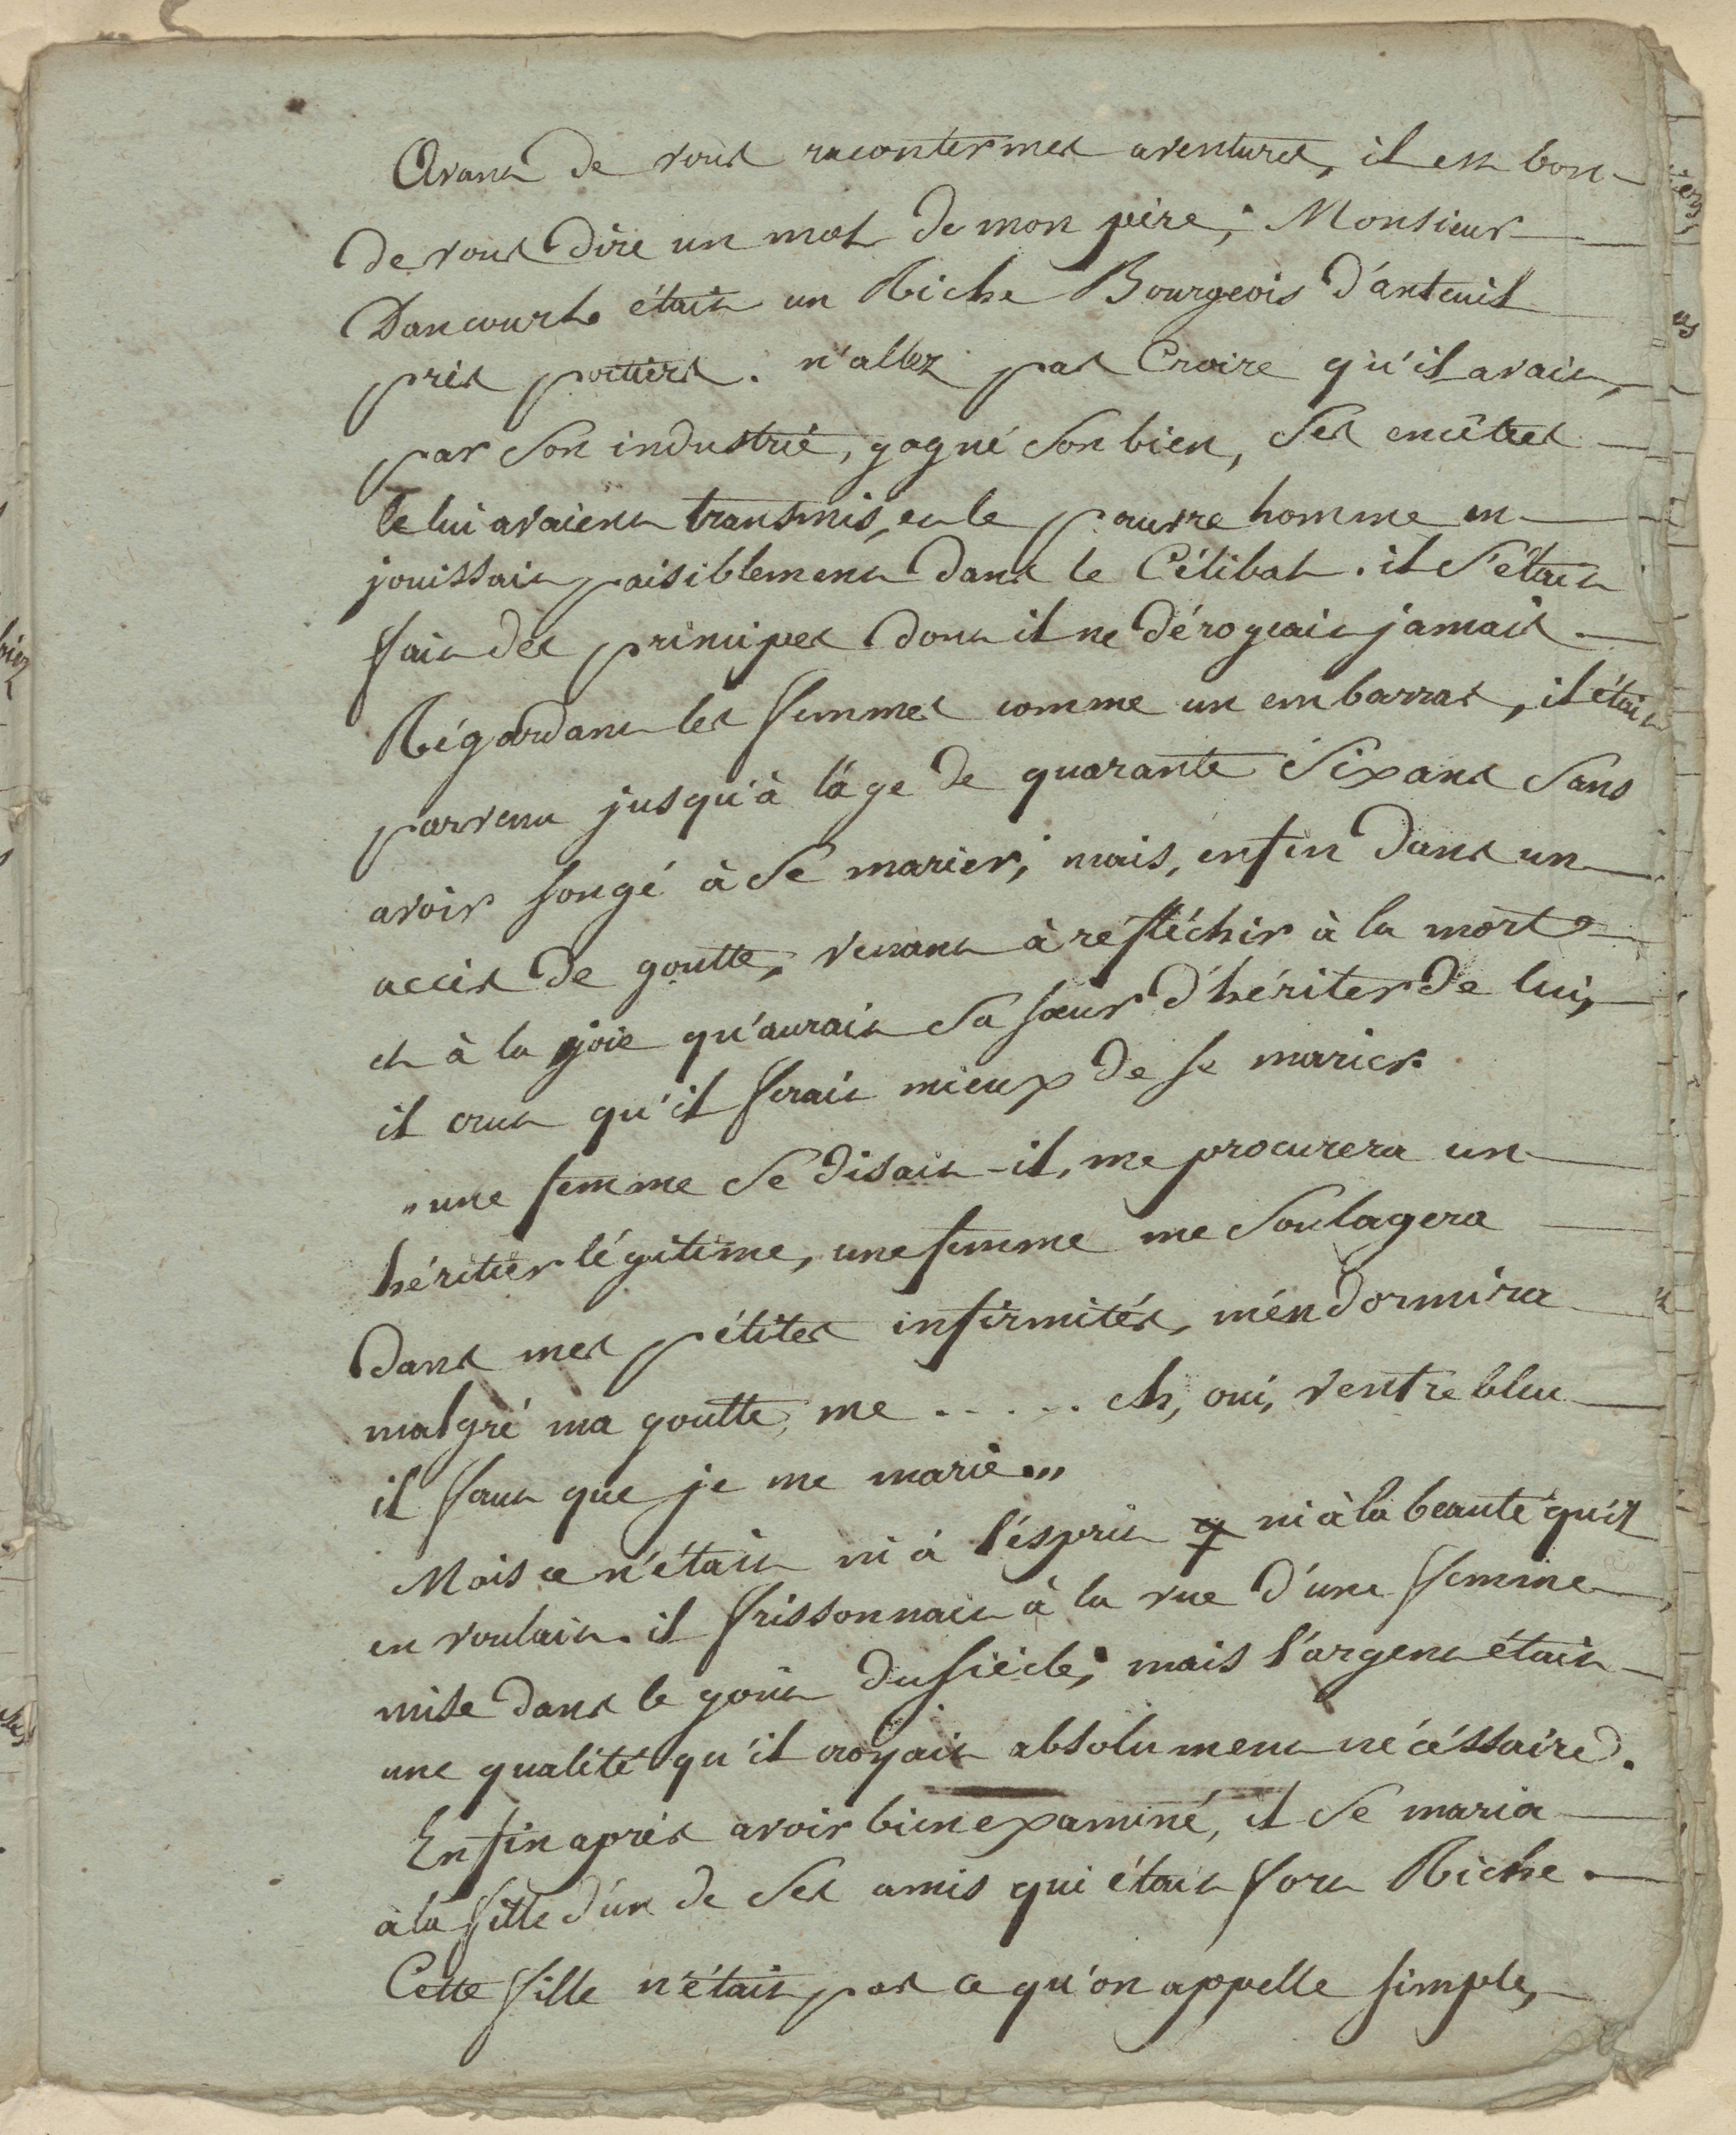 Avant de vous raconter mes aventures, il est bon
de vous dire un mot de mon père; Monsieur
Dancourt était un Riche Bourgeois d'anteuil
près poitiers. n'allez pas Croire qu'il avait,
par Son industrie, gagné Son bien, Ses encêtres
le lui avaient transmis, et le pauvre homme en
jouissait paisiblement dans le Célibat. il S'était
fait des principes dont il ne dérogeait jamais.
Régardant les femmes comme un embarras, il était
parvenu jusqu'à l'âge de quarante Six ans Sans
avoir songé à Se marier; mais, enfin dans un
accès de goutte, venant à refléchir à la mort
et à la joie qu'aurait Sa sœur d'hériter de lui,
il crut qu'il ferait mieux de se marier.
"une femme Se disait-il, me procurera un
héritier légitime, une femme me Soulagera
dans mes pétites infirmités, m'éndormira
malgré ma goutte, me ..... eh, oui, ventrebleu
il faut que je me marie...
Mais ce n'était ni à l'ésprit q ni à la beauté qu'il
en voulait. il frissonnait à la vue d'une femme,
mise dans le goût du siècle; mais l'argent était
une qualité qu'il croyait absolument nécéssaire.
Enfin après avoir bien examiné, il Se maria
à la fille d'un de Ses amis qui était fort Riche.
Cette fille n'était pas ce qu'on appelle simple,